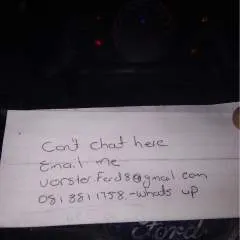 Can't chat here
Email me
vorster.ford8@gmail com
081 3811758.-whats up
Ford